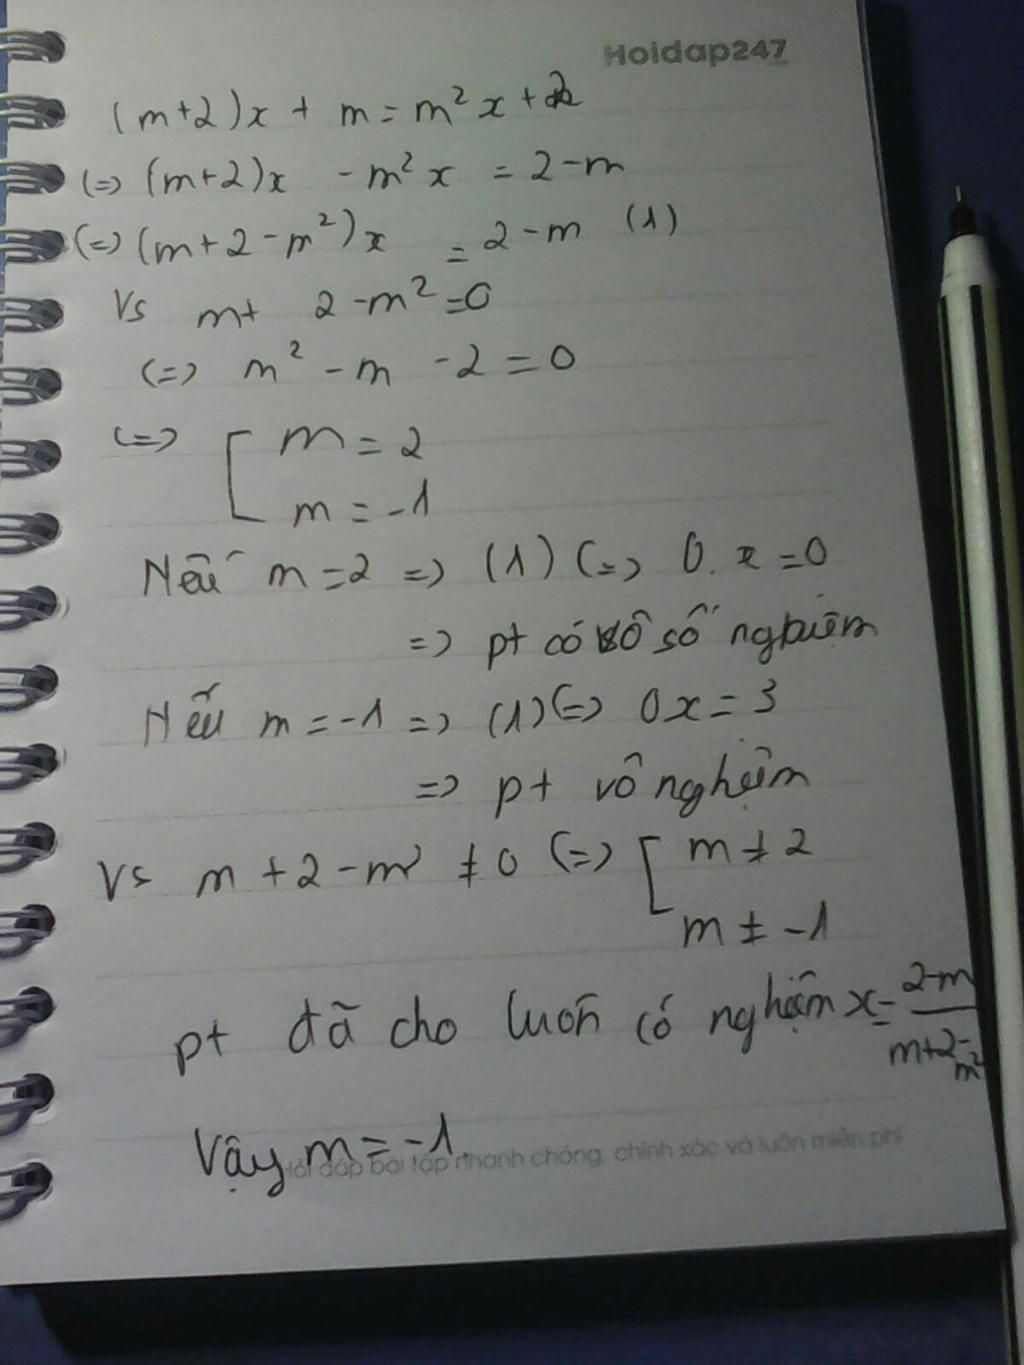 Hoidap247
(m+2)x + m = m²x + 2
(=) (m+2)x - m²x = 2-m
(=) (m+2-m²)x = 2-m (1)
Vs m+ 2-m²=0
(=) m² - m - 2 = 0
(=) [ m = 2
m = -1
Nếu m=2 => (1) (=) 0.x=0
=> pt có vô số nghiệm
Nếu m=-1 => (1) (=) 0x=3
=> pt vô nghiệm
Vs m+2-m² ≠ 0 (=) [ m ≠ 2
m ≠ -1
pt đã cho luôn có nghiệm x = (2-m)/(m+2-m²)
Vậy m = -1
Hỏi đáp bài tập nhanh chóng, chính xác và luôn miễn phí